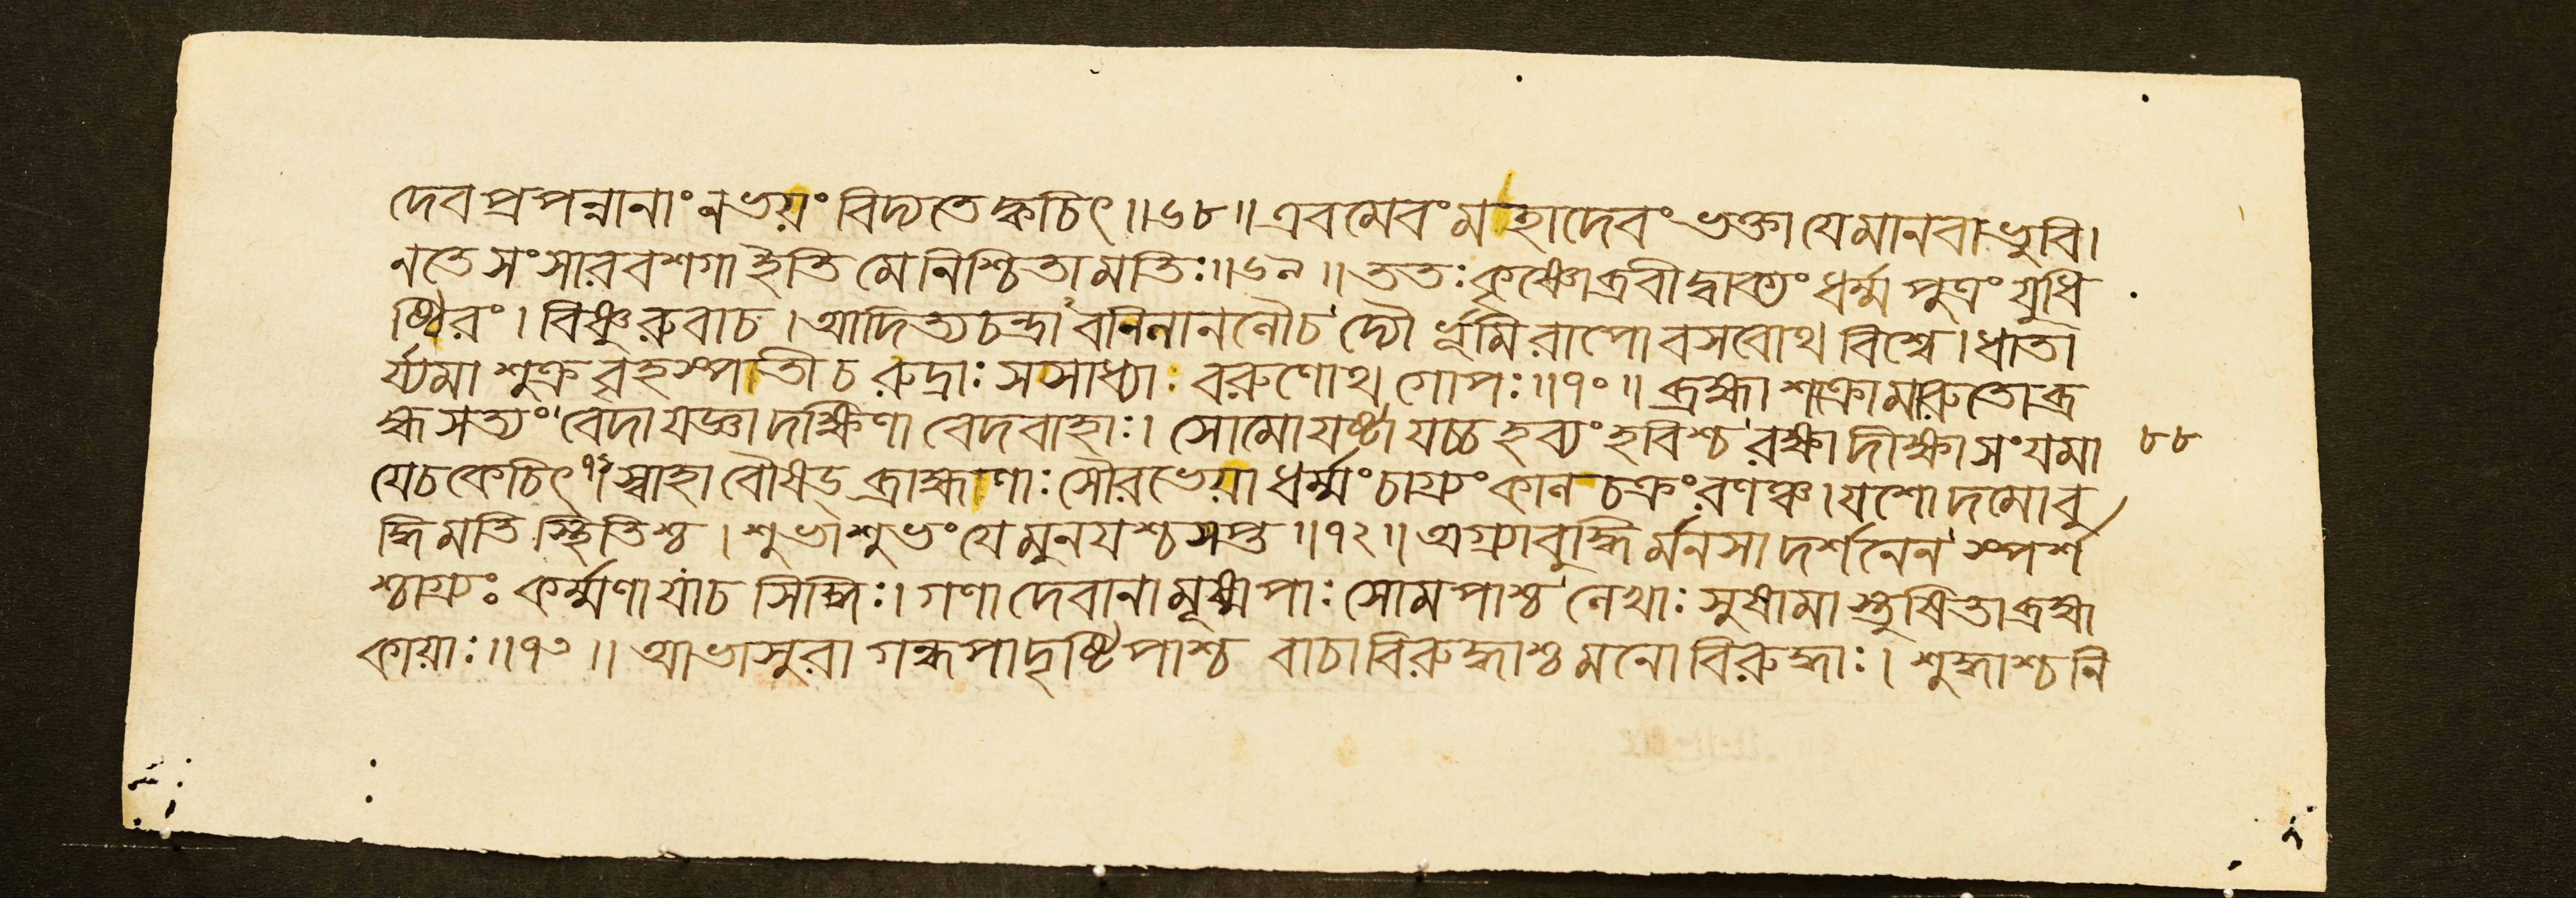 দেবপ্রপন্নানাং নভয়ং বিদ্যতেক্বচিৎ ॥৬৮॥ এবমেবং মহাদেবং ভক্তা যেমানবা ভুবি।
নতে সংসারবশগা ইতি মেনিশ্চিতা মতিঃ॥৬৯॥ ততঃ কৃষ্ণোব্রবীদ্বাক্যং ধর্ম্মপুত্রং যুধি
ষ্ঠিরং। বিষ্ণুরুবাচ। আদিত্যচন্দ্রাবনিলানলৌচ দ্যৌর্ভূমিরাপো বসবোথ বিশ্বে। ধাতা
র্য্যমা শুক্রবৃহস্পতীচ রুদ্রাঃ সসাধ্যাঃ বরুণোথ গোপঃ॥৭০॥ ব্রহ্মা শক্রোমারুতোব্র
হ্মসত্যং বেদাযজ্ঞাদক্ষিণা বেদবাহাঃ। সোমোযষ্টা যচ্চহব্যংহবিশ্চ রক্ষাদীক্ষাসংযমা ৮৮
যেচকেচিৎ৭১ স্বাহাবৌষড্ ব্রাহ্মণাঃ সৌরভেয়া ধর্ম্মংচাগ্র্যং কালচক্রং বলঞ্চ। যশোদমোবু
দ্ধিমতিস্থিতিশ্চ। শুভাশুভং যেমুনযশ্চসপ্ত॥৭২॥ অগ্র্যাবুদ্ধির্মনসাদর্শনেন স্পর্শ
শ্চাগ্র্যঃ কর্ম্মণাযাচ সিদ্ধিঃ। গণাদেবানামূষ্মপাঃ সোমপাশ্চ লেখাঃ সুযামাস্তুষিতাব্রহ্ম
কায়াঃ॥৭৩॥ আভাসুরাগন্ধপাদৃষ্টিপাশ্চ বাচাবিরুদ্ধাশ্চ মনোবিরুদ্ধাঃ। শুদ্ধাশ্চনি